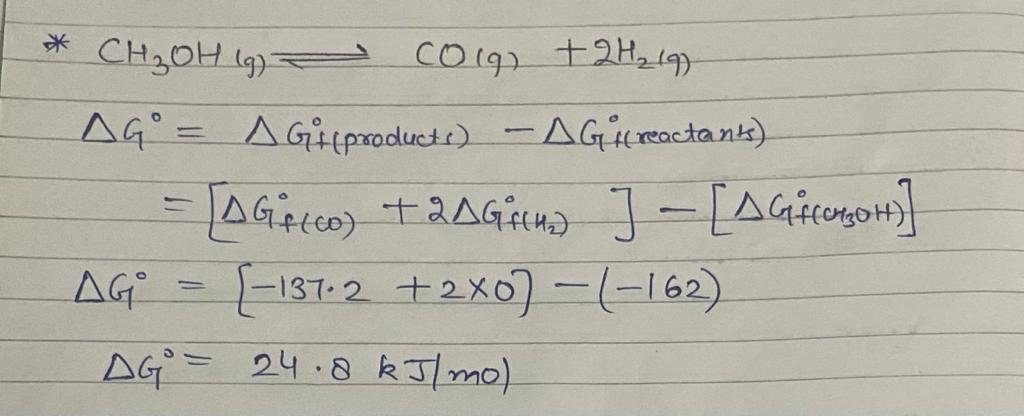 * CH₃OH (g) ⇌ CO(g) + 2H₂(g)
ΔG° = ΔG°f(products) − ΔG°f(reactants)
= [ΔG°f(CO) + 2ΔG°f(H₂) ] − [ΔG°f(CH₃OH)]
ΔG° = [−137.2 + 2×0] − (−162)
ΔG° = 24.8 kJ/mol